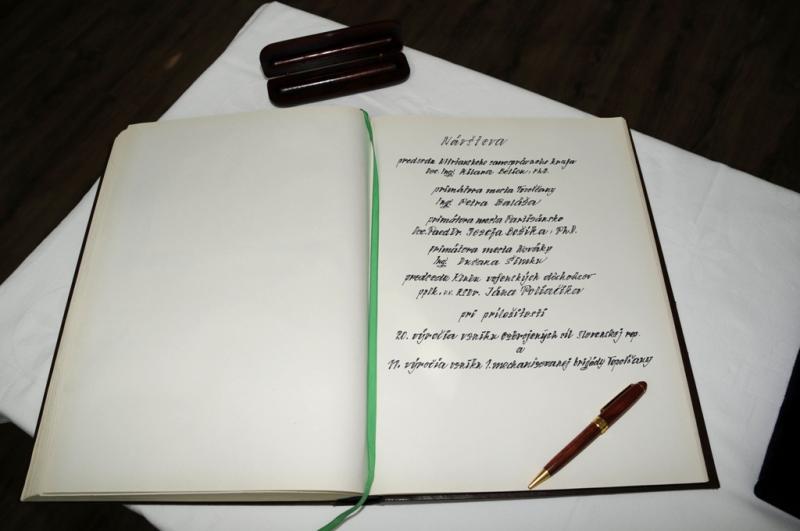 Návšteva
predsedu Nitrianskeho samosprávneho kraja
Doc. Ing. Milana Belicu, PhD.
primátora mesta Topoľčany
Ing. Petra Baláža
primátora mesta Partizánske
Doc. PaedDr. Jozefa Božika, PhD.
primátora mesta Nováky
Ing. Dušana Šimku
predsedu Klubu vojenských dôchodcov
pplk. v.v. RSDr. Jána
pri príležitosti
20. výročia vzniku Ozbrojených síl Slovenskej rep.
a
11. výročia vzniku 1. mechanizovanej brigády Topoľčany